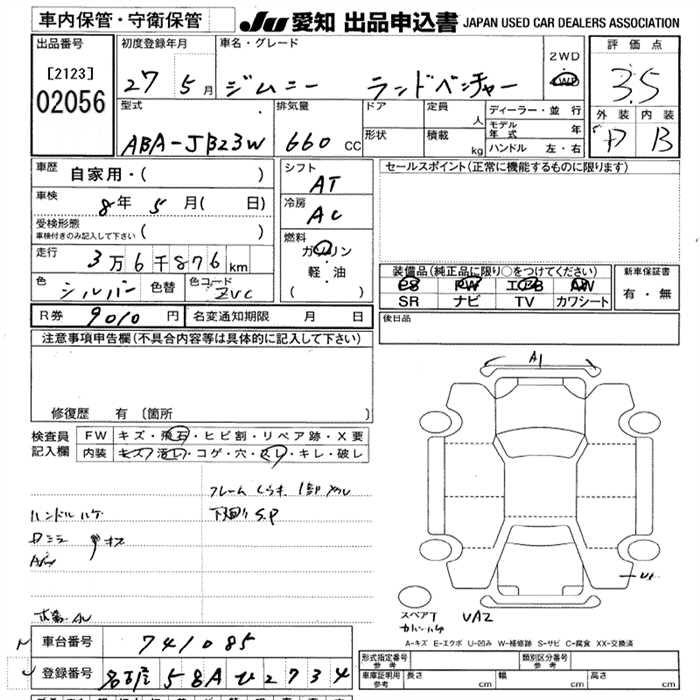 車内保管・守衛保管
JU 愛知 出品申込書 JAPAN USED CAR DEALERS ASSOCIATION
出品番号
[2123]
02056
初度登録年月
27 5月
車名・グレード
ジムニー ランドベンチャー
2WD
4WD
評価点
3.5
外装 内装
B
型式
ABA-JB23W
排気量
660 CC
ドア
定員
人
形状
積載
kg
ディーラー・並行
モデル年式 年
ハンドル 左・右
車歴
自家用・( )
車検
8年 5月( 日)
受検形態
車検付きのみ記入して下さい ( )
走行
3万6千876km
色
シルバー
色替
色コード
ZVC
シフト
AT
冷房
AC
燃料
ガソリン
軽・油
( )
セールスポイント(正常に機能するものに限ります)
装備品(純正品に限り○をつけてください)
PS PW エアB AW
SR ナビ TV カワシート
新車保証書
有・無
後日品
R券 9010 円
名変通知期限 月 日
注意事項申告欄(不具合内容等は具体的に記入して下さい)
修復歴 有〔箇所 〕
検査員記入欄
FW キズ・飛石・ヒビ割・リペア跡・X要
内装 キズ・汚レ・コゲ・穴・スレ・キレ・破レ
下廻り S.P
ハンドル ハゲ
A1
U1
スペアT
カバー
UA2
A-キズ E-エクボ U-凹み W-補修跡 S-サビ C-腐食 XX-交換済
車台番号 741085
登録番号 名古屋 58A ひ 2734
形式指定番号 参考
類別区分番号 参考
車庫証明用 参考 長さ 幅 高さ